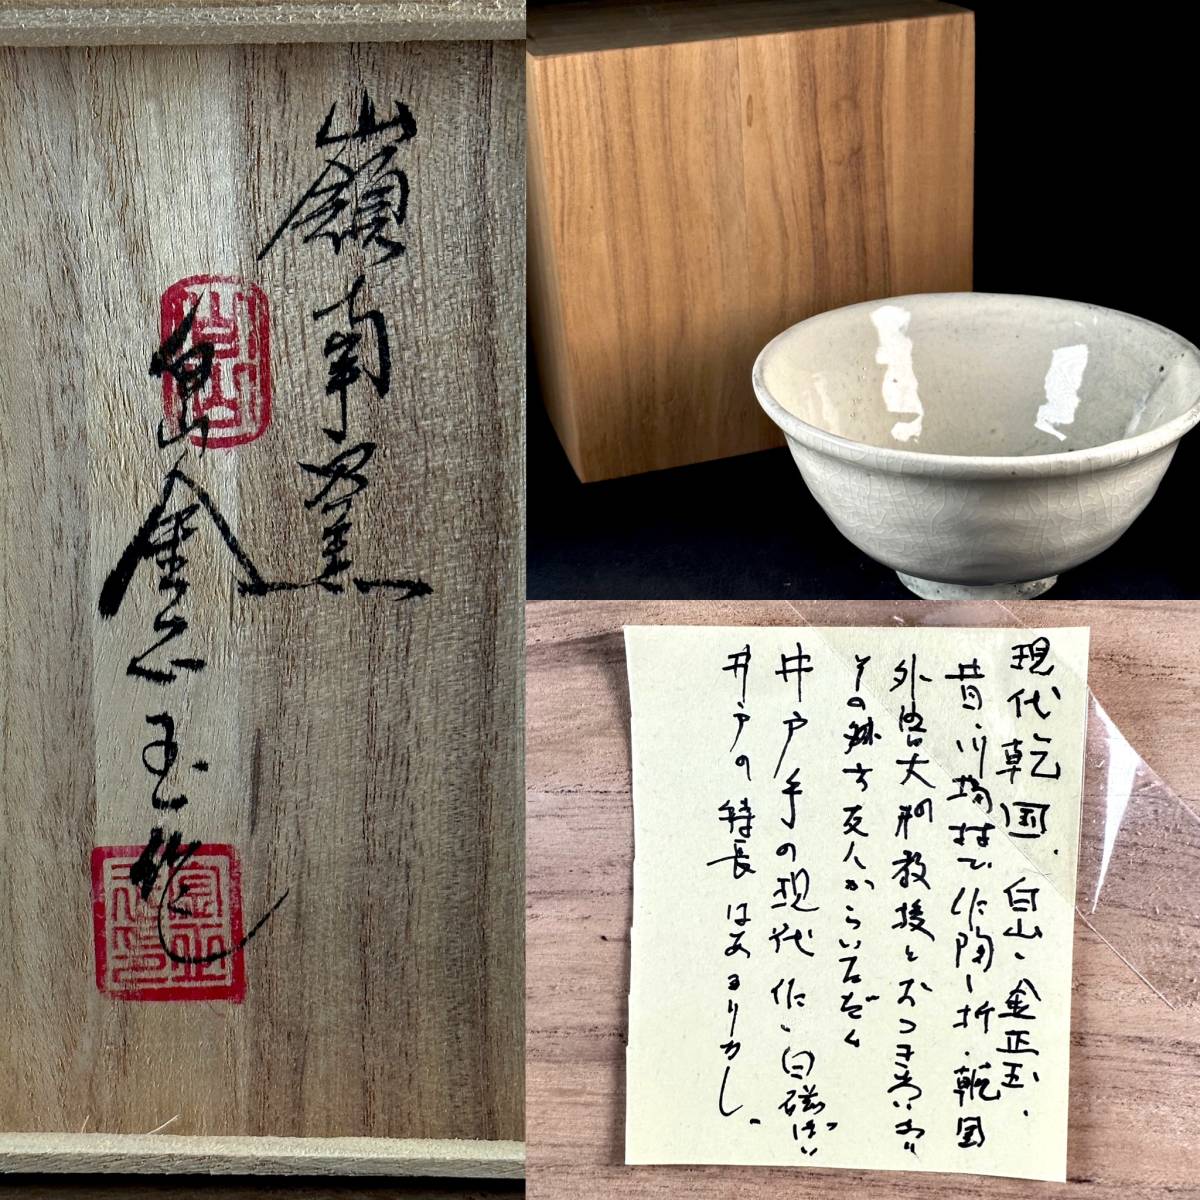 嶺南窯
白山 金正玉作
現代乾国.白山、金正玉.
昔、川場村で作陶し折.乾国
外语大の教授とおつき合いあり
その縁で友人からいただく
井戸手の現代作、白磁ぽい
井戸の特長はあるりカし.